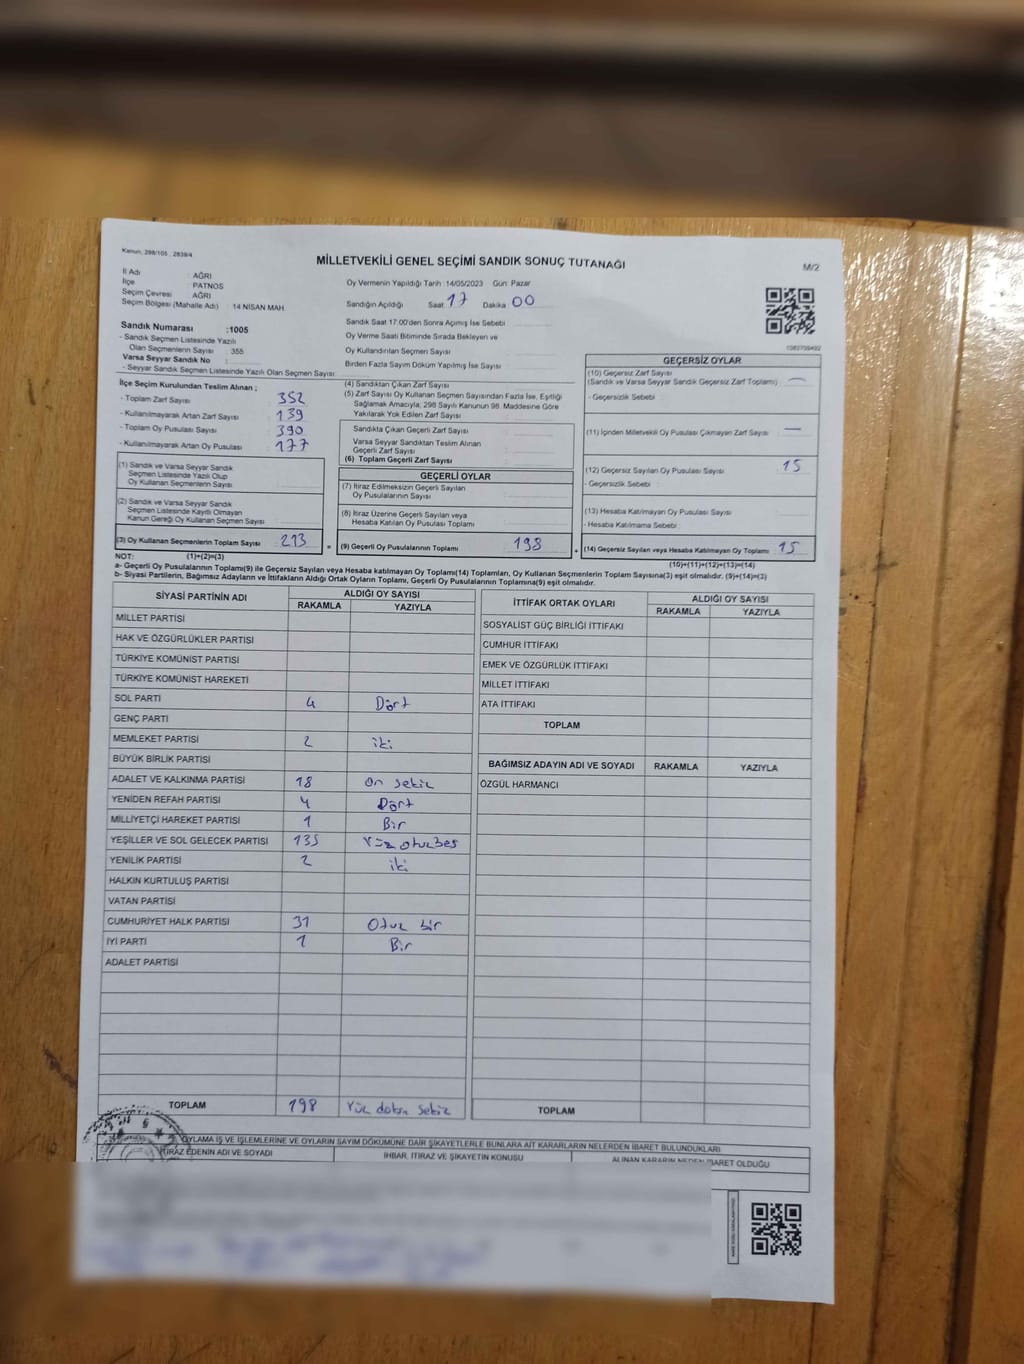 Kanun, 298/105 , 2839/4
MİLLETVEKİLİ GENEL SEÇİMİ SANDIK SONUÇ TUTANAĞI
M/2
İl Adı : AĞRI
İlçe : PATNOS
Seçim Çevresi : AĞRI
Seçim Bölgesi (Mahalle Adı) : 14 NİSAN MAH
Oy Vermenin Yapıldığı Tarih : 14/05/2023 Gün Pazar
Sandığın Açıldığı Saat 17 Dakika 00
Sandık Saat 17:00'den Sonra Açımış İse Sebebi
Oy Verme Saati Bitiminde Sırada Bekleyen ve
Oy Kullandırılan Seçmen Sayısı
Birden Fazla Sayım Döküm Yapılmış İse Sayısı
Sandık Numarası :1005
- Sandık Seçmen Listesinde Yazılı
Olan Seçmenlerin Sayısı : 355
Varsa Seyyar Sandık No :
- Seyyar Sandık Seçmen Listesinde Yazılı Olan Seçmen Sayısı:
İlçe Seçim Kurulundan Teslim Alınan ;
- Toplam Zarf Sayısı : 352
- Kullanılmayarak Artan Zarf Sayısı : 139
- Toplam Oy Pusulası Sayısı : 390
- Kullanılmayarak Artan Oy Pusulası : 177
(1) Sandık ve Varsa Seyyar Sandık
Seçmen Listesinde Yazılı Olup
Oy Kullanan Seçmenlerin Sayısı
(2) Sandık ve Varsa Seyyar Sandık
Seçmen Listesinde Kayıtlı Olmayan
Kanun Gereği Oy Kullanan Seçmen Sayısı
(3) Oy Kullanan Seçmenlerin Toplam Sayısı : 213
(4) Sandıktan Çıkan Zarf Sayısı
(5) Zarf Sayısı Oy Kullanan Seçmen Sayısından Fazla İse, Eşitliği
Sağlamak Amacıyla; 298 Sayılı Kanunun 98. Maddesine Göre
Yakılarak Yok Edilen Zarf Sayısı
Sandıkta Çıkan Geçerli Zarf Sayısı
Varsa Seyyar Sandıktan Teslim Alınan
Geçerli Zarf Sayısı
(6) Toplam Geçerli Zarf Sayısı
GEÇERLİ OYLAR
(7) İtiraz Edilmeksizin Geçerli Sayılan
Oy Pusulalarının Sayısı
(8) İtiraz Üzerine Geçerli Sayılan veya
Hesaba Katılan Oy Pusulası Toplamı
= (9) Geçerli Oy Pusulalarının Toplamı : 198
GEÇERSİZ OYLAR
(10) Geçersiz Zarf Sayısı
(Sandık ve Varsa Seyyar Sandık Geçersiz Zarf Toplamı) : —
- Geçersizlik Sebebi :
(11) İçinden Milletvekili Oy Pusulası Çıkmayan Zarf Sayısı : —
(12) Geçersiz Sayılan Oy Pusulası Sayısı : 15
- Geçersizlik Sebebi :
(13) Hesaba Katılmayan Oy Pusulası Sayısı :
- Hesaba Katılmama Sebebi :
+ (14) Geçersiz Sayılan veya Hesaba Katılmayan Oy Toplamı : 15
NOT: (1)+(2)=(3)
(10)+(11)+(12)+(13)=(14)
a- Geçerli Oy Pusulalarının Toplamı(9) ile Geçersiz Sayılan veya Hesaba katılmayan Oy Toplamı(14) Toplamları, Oy Kullanan Seçmenlerin Toplam Sayısına(3) eşit olmalıdır. (9)+(14)=(3)
b- Siyasi Partilerin, Bağımsız Adayların ve İttifakların Aldığı Ortak Oyların Toplamı, Geçerli Oy Pusulalarının Toplamına(9) eşit olmalıdır.
SİYASİ PARTİNİN ADI ALDIĞI OY SAYISI
RAKAMLA YAZIYLA
MİLLET PARTİSİ
HAK VE ÖZGÜRLÜKLER PARTİSİ
TÜRKİYE KOMÜNİST PARTİSİ
TÜRKİYE KOMÜNİST HAREKETİ
SOL PARTİ 4 Dört
GENÇ PARTİ
MEMLEKET PARTİSİ 2 iki
BÜYÜK BİRLİK PARTİSİ
ADALET VE KALKINMA PARTİSİ 18 on sekiz
YENİDEN REFAH PARTİSİ 4 Dört
MİLLİYETÇİ HAREKET PARTİSİ 1 Bir
YEŞİLLER VE SOL GELECEK PARTİSİ 135 Yüz otuzbeş
YENİLİK PARTİSİ 2 iki
HALKIN KURTULUŞ PARTİSİ
VATAN PARTİSİ
CUMHURİYET HALK PARTİSİ 31 Otuz bir
İYİ PARTİ 1 Bir
ADALET PARTİSİ
TOPLAM 198 Yüz doksan sekiz
İTTİFAK ORTAK OYLARI ALDIĞI OY SAYISI
RAKAMLA YAZIYLA
SOSYALİST GÜÇ BİRLİĞİ İTTİFAKI
CUMHUR İTTİFAKI
EMEK VE ÖZGÜRLÜK İTTİFAKI
MİLLET İTTİFAKI
ATA İTTİFAKI
TOPLAM
BAĞIMSIZ ADAYIN ADI VE SOYADI RAKAMLA YAZIYLA
ÖZGÜL HARMANCI
TOPLAM
OYLAMA İŞ VE İŞLEMLERİNE VE OYLARIN SAYIM DÖKÜMÜNE DAİR ŞİKAYETLERLE BUNLARA AİT KARARLARIN NELERDEN İBARET BULUNDUKLARI
İTİRAZ EDENİN ADI VE SOYADI İHBAR, İTİRAZ VE ŞİKAYETİN KONUSU ALINAN KARARIN NEDEN İBARET OLDUĞU